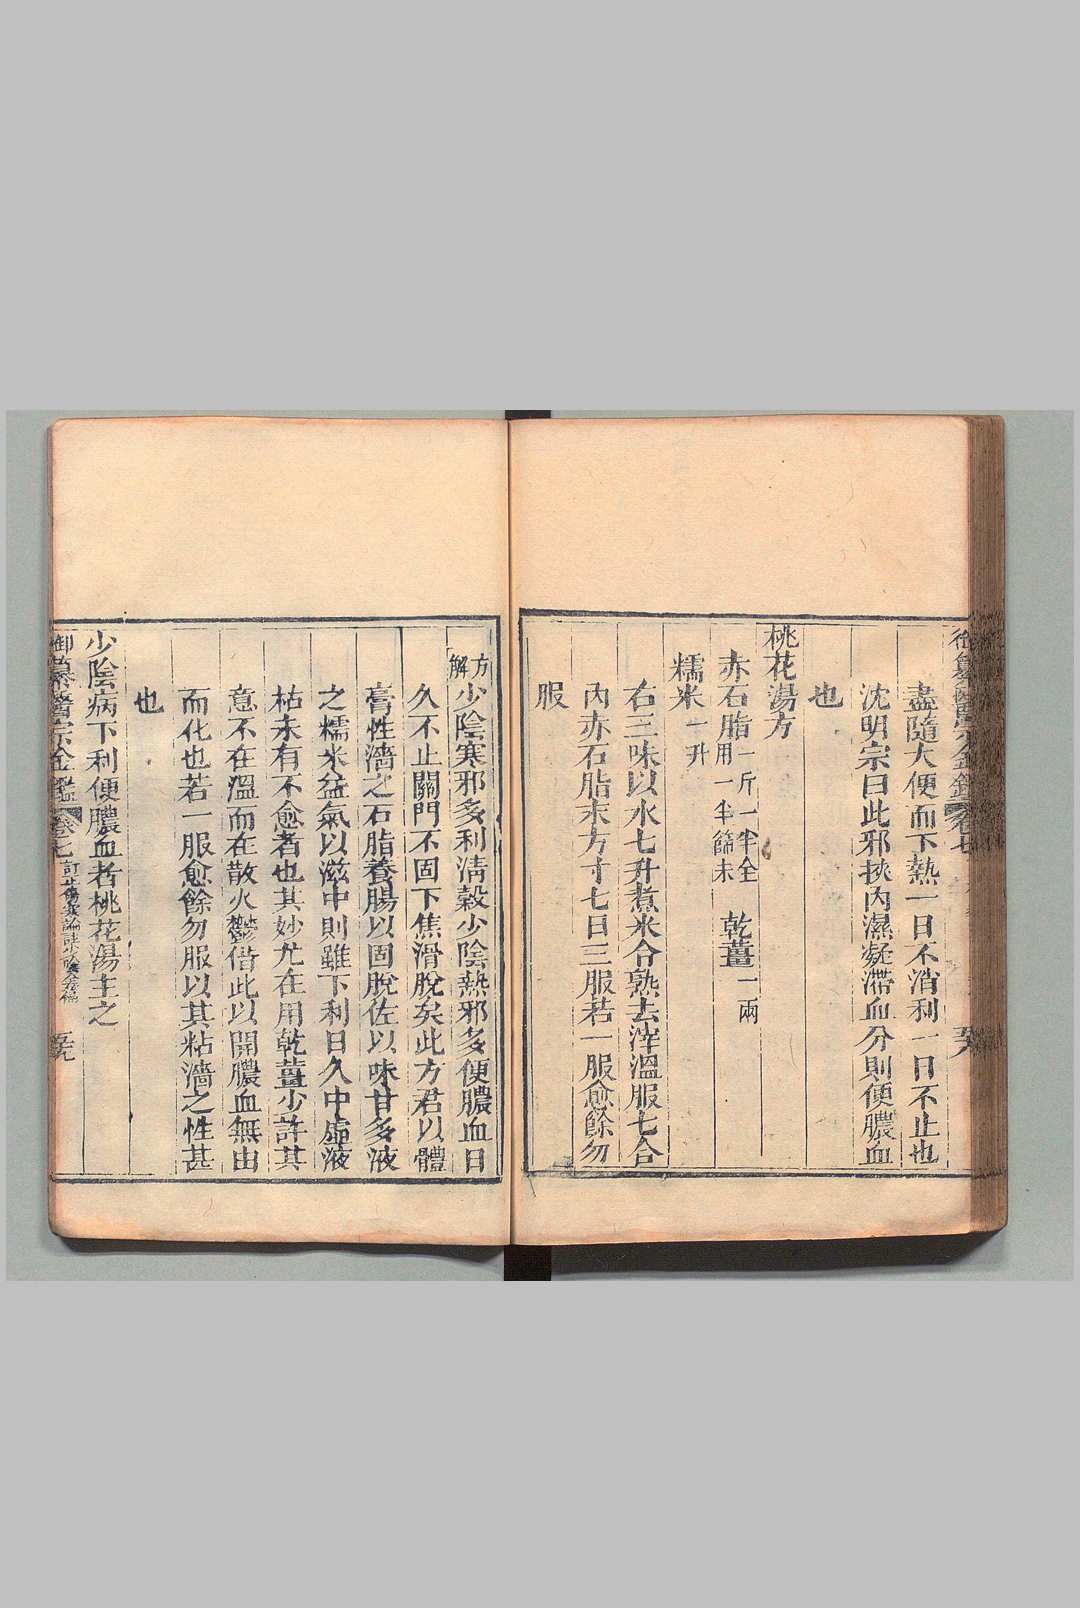 盡隨大便而下熱一日不消利一日不止也
沈明宗曰此邪挾內濕凝滯血分則便膿血
也
桃花湯方
赤石脂一斤一半全用一半篩末 乾薑一兩
糯米一升
右三味以水七升煮米合熟去滓溫服七合
內赤石脂末方寸七日三服若一服愈餘勿
服
方解少陰寒邪多利清穀少陰熱邪多便膿血日
久不止關門不固下焦滑脫矣此方君以體
膏性濇之石脂養腸以固脫佐以味甘多液
之糯米益氣以滋中則雖下利日久中虛液
枯未有不愈者也其妙尤在用乾薑少許其
意不在溫而在散火鬱借此以開膿血無由
而化也若一服愈餘勿服以其粘濇之性甚
也
少陰病下利便膿血者桃花湯主之
御纂醫宗金鑑 卷七 訂正傷寒論註少陰全篇 五九